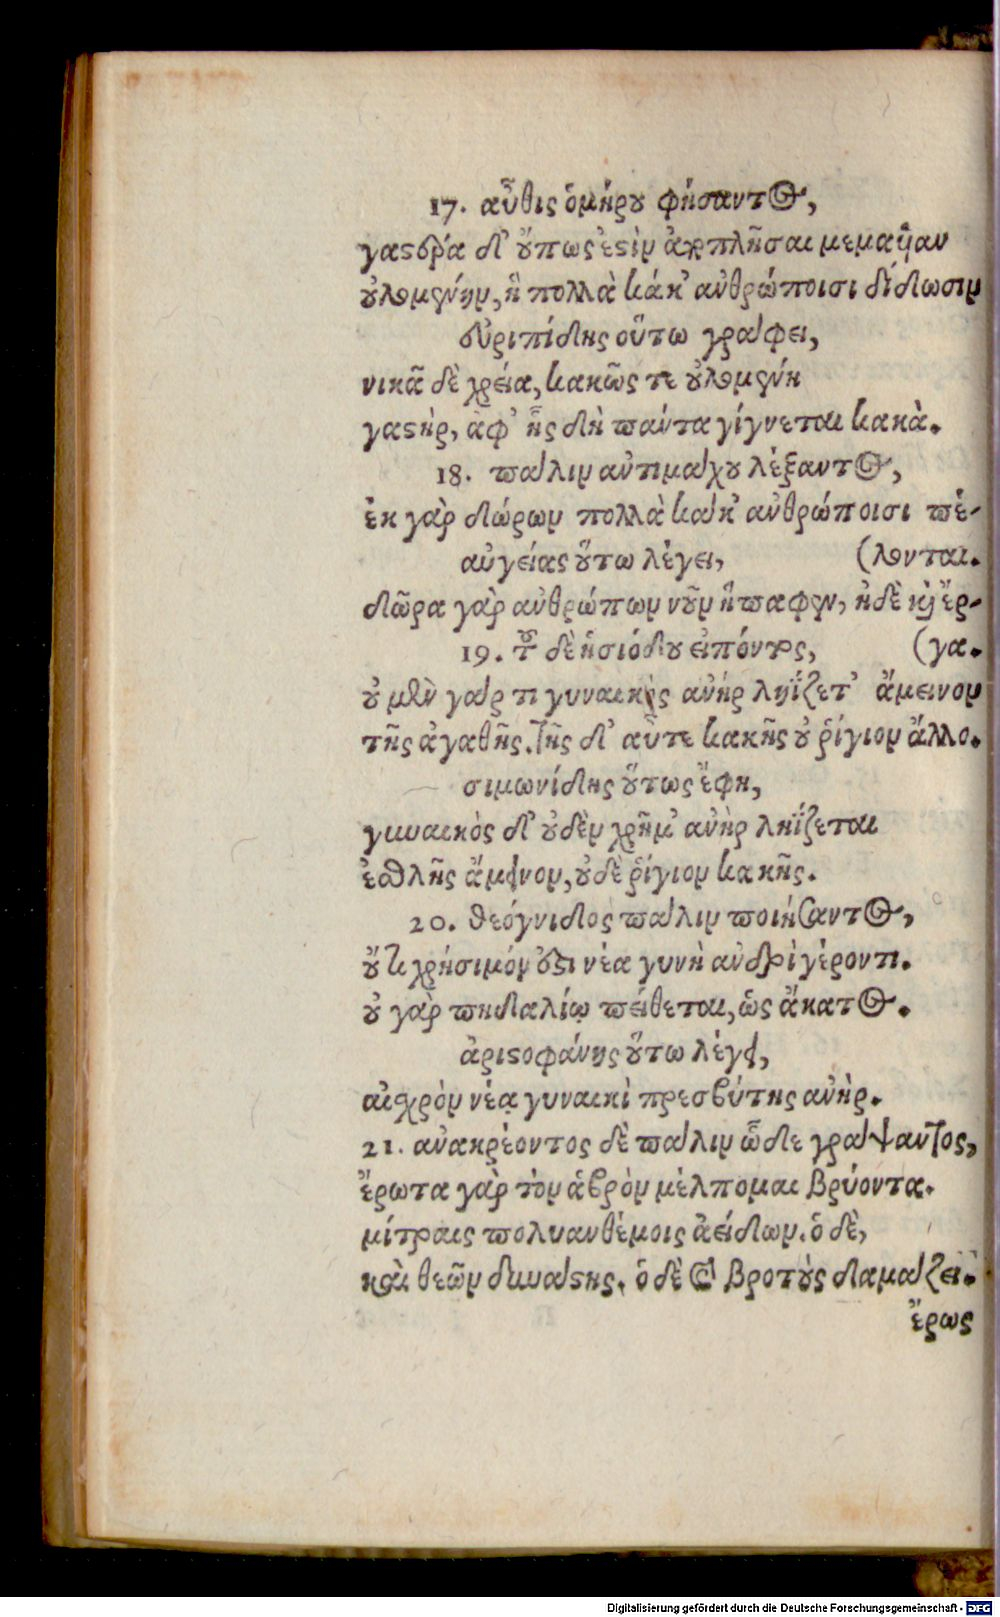 17. αὖθις ὁμήρου φήσαντος,
γαστέρα δ' οὔπως ἐστὶν ἀποπλῆσαι μεμαυῖαν
οὐλομένην, ἣ πολλὰ κάκ' ἀνθρώποισι δίδωσιν
εὐριπίδης οὕτω γράφει,
νικᾷ δὲ χρεία, κακῶς τε οὐλομένη
γαστὴρ, ἀφ' ἧς δὴ πάντα γίγνεται κακὰ.
18. πάλιν ἀντιμάχου λέξαντος,
ἐκ γὰρ δώρων πολλὰ κάκ' ἀνθρώποισι πέ-
αὐγείας οὕτω λέγει, (λονται.
δῶρα γὰρ ἀνθρώπων νοῦν ἤπαφεν, ἠδὲ καὶ ἔρ-
19. τοῦ δὲ ἡσιόδου εἰπόντος, (γα.
οὐ μὲν γάρ τι γυναικὸς ἀνήρ ληΐζετ' ἄμεινον
τῆς ἀγαθῆς. τῆς δ' αὖτε κακῆς οὐ ῥίγιον ἄλλο.
σιμωνίδης οὕτως ἔφη,
γυναικὸς δ' οὐδὲν χρῆμ' ἀνὴρ ληΐζεται
ἐσθλῆς ἄμεινον, οὐδὲ ῥίγιον κακῆς.
20. θεόγνιδος πάλιν ποιήσαντος,
οὔ κ χρήσιμόν ἐστι νέα γυνὴ ἀνδρὶ γέροντι.
οὐ γὰρ πηδαλίῳ πείθεται, ὡς ἄκατος.
ἀριστοφάνης οὕτω λέγει,
αἰσχρὸν νέᾳ γυναικὶ πρεσβύτης ἀνὴρ.
21. ἀνακρέοντος δὲ πάλιν ὧδε γράψαντος,
ἔρωτα γὰρ τὸν ἁβρὸν μέλπομαι βρύοντα.
μίτραις πολυανθέμοις ἀείδων. ὁ δὲ,
καὶ θεῶν δυνάστης. ὁ δὲ καὶ βροτοὺς δαμάζει.
ἔρως
Digitalisierung gefördert durch die Deutsche Forschungsgemeinschaft - DFG